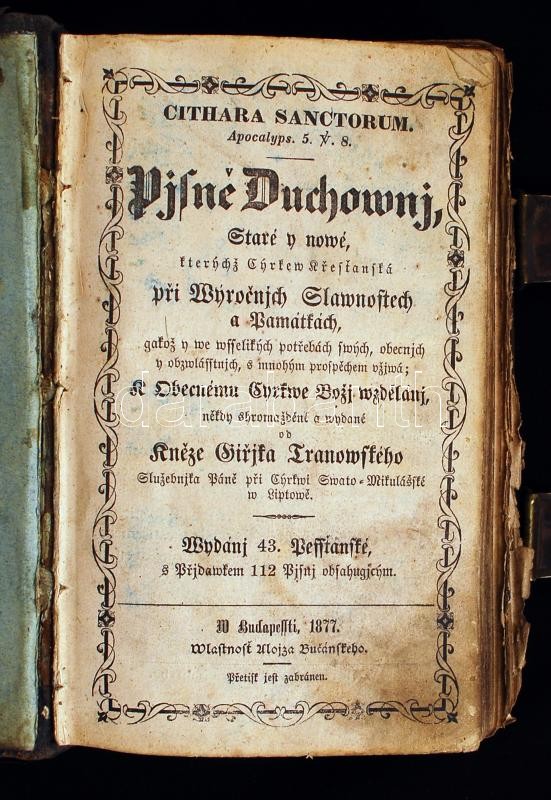 CITHARA SANCTORUM.
Apocalyps. 5. V. 8.
Pjsně Duchownj,
Staré y nowé,
kterýchž Cýrkew Křesťanská
při Weyročnjch Slawnostech
a Památkách,
gakož y we wsselikých potřebách swých, obecnjch
y obzwlásstnjch, s mnohým prospěchem vžjwá;
K Obecnému Cyrkwe Božj wzdělanj,
někdy shromáždění a wydané
od
Kněze Giřjka Tranowského
Služebnjka Páně při Cýrkwi Swato-Mikulášské
w Liptowě.
Wydánj 43. Pessťanské,
s Přjdawkem 112 Pjsnj obsahugjcým.
W Budapessti, 1877.
Wlastnosť Alojza Bučánskeho.
Přetisk jest zabránen.